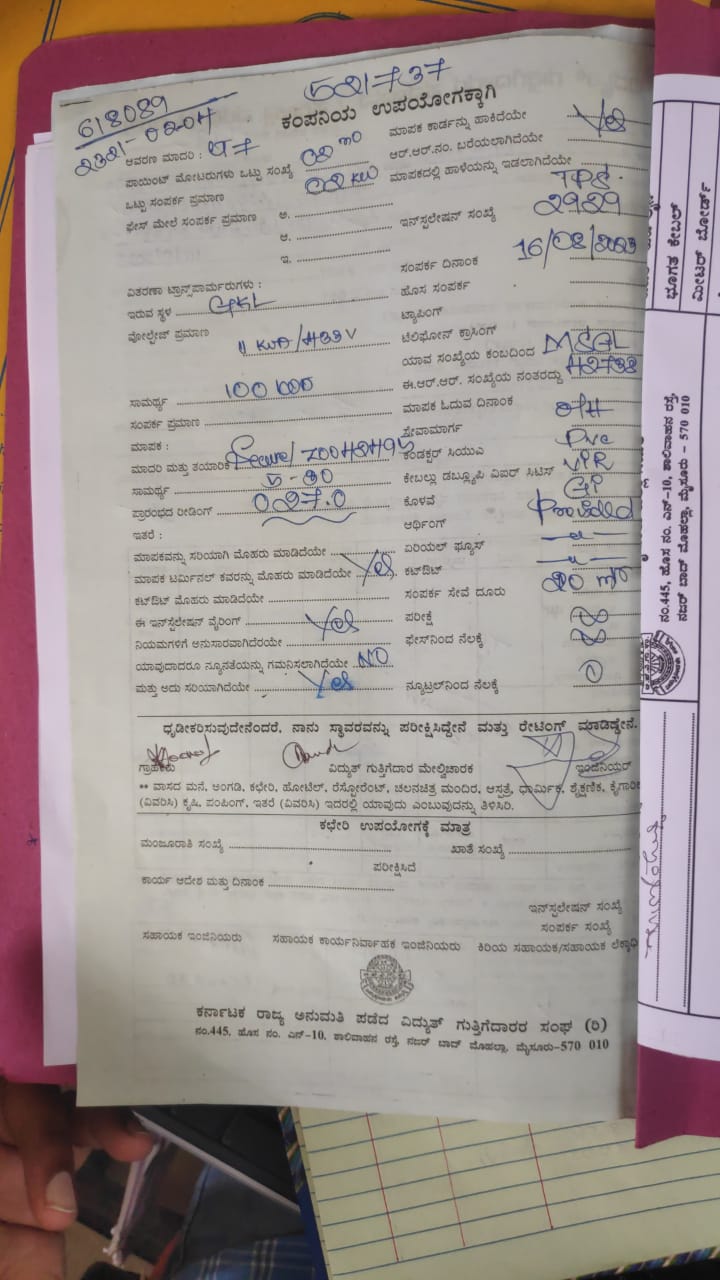 618089
521737
ಕಂಪನಿಯ ಉಪಯೋಗಕ್ಕಾಗಿ
ಆವರಣ ಮಾದರಿ :
ಮಾಪಕ ಕಾರ್ಡನ್ನು ಹಾಕಿದೆಯೇ Yes
ಪಾಯಿಂಟ್ ಮೋಟರುಗಳು ಒಟ್ಟು ಸಂಖ್ಯೆ
ಆರ್.ಆರ್.ನಂ. ಬರೆಯಲಾಗಿದೆಯೇ
ಒಟ್ಟು ಸಂಪರ್ಕ ಪ್ರಮಾಣ 02 KW
ಮಾಪಕದಲ್ಲಿ ಹಾಳೆಯನ್ನು ಇಡಲಾಗಿದೆಯೇ
ಫೇಸ್ ಮೇಲೆ ಸಂಪರ್ಕ ಪ್ರಮಾಣ ಅ.
ಇನ್‌ಸ್ಪಲೇಷನ್ ಸಂಖ್ಯೆ 2929
ಆ.
ಇ.
ಸಂಪರ್ಕ ದಿನಾಂಕ 16/08/2023
ವಿತರಣಾ ಟ್ರಾನ್ಸ್‌ಪಾರ್ಮರುಗಳು :
ಹೊಸ ಸಂಪರ್ಕ
ಇರುವ ಸ್ಥಳ
ಟ್ಯಾಪಿಂಗ್
ವೋಲ್ಟೇಜ್ ಪ್ರಮಾಣ
ಟೆಲಿಫೋನ್ ಕ್ರಾಸಿಂಗ್
ಯಾವ ಸಂಖ್ಯೆಯ ಕಂಬದಿಂದ
ಸಾಮರ್ಥ್ಯ
ಈ.ಆರ್.ಆರ್. ಸಂಖ್ಯೆಯ ನಂತರದ್ದು
ಸಂಪರ್ಕ ಪ್ರಮಾಣ
ಮಾಪಕ ಓದುವ ದಿನಾಂಕ
ಮಾಪಕ :
ಸೇವಾಮಾರ್ಗ
ಮಾದರಿ ಮತ್ತು ತಯಾರಿಕೆ
ಕಂಡಕ್ಟರ್ ಸಿಯುಎ Pvc
ಸಾಮರ್ಥ್ಯ 5-30
ಕೇಬಲ್ಲು ಡಬ್ಲ್ಯೂಪಿ ವಿಐರ್ ಸಿಟಿಸ್
ಪ್ರಾರಂಭದ ರೀಡಿಂಗ್ 027.0
ಕೊಳವೆ
ಇತರೆ :
ಆರ್ಥಿಂಗ್ Provided
ಮಾಪಕವನ್ನು ಸರಿಯಾಗಿ ಮೊಹರು ಮಾಡಿದೆಯೇ
ಏರಿಯಲ್ ಫ್ಯೂಸ್
ಮಾಪಕ ಟರ್ಮಿನಲ್ ಕವರನ್ನು ಮೊಹರು ಮಾಡಿದೆಯೇ Yes
ಕಟ್‌ಔಟ್
ಕಟ್‌ಔಟ್ ಮೊಹರು ಮಾಡಿದೆಯೇ
ಸಂಪರ್ಕ ಸೇವೆ ದೂರು
ಈ ಇನ್‌ಸ್ಪಲೇಷನ್ ವೈರಿಂಗ್ Yes
ಪರೀಕ್ಷೆ
ನಿಯಮಗಳಿಗೆ ಅನುಸಾರವಾಗಿದೆರಯೇ
ಫೇಸ್‌ನಿಂದ ನೆಲಕ್ಕೆ
ಯಾವುದಾದರೂ ನ್ಯೂನತೆಯನ್ನು ಗಮನಿಸಲಾಗಿದೆಯೇ NO
ಮತ್ತು ಅದು ಸರಿಯಾಗಿದೆಯೇ Yes
ನ್ಯೂಟ್ರಲ್‌ನಿಂದ ನೆಲಕ್ಕೆ
ಧೃಡೀಕರಿಸುವುದೇನೆಂದರೆ, ನಾನು ಸ್ಥಾವರವನ್ನು ಪರೀಕ್ಷಿಸಿದ್ದೇನೆ ಮತ್ತು ರೇಟಿಂಗ್ ಮಾಡಿದ್ದೇನೆ.
ಗ್ರಾಹಕರು ವಿದ್ಯುತ್ ಗುತ್ತಿಗೆದಾರ ಮೇಲ್ವಿಚಾರಕ ಇಂಜಿನಿಯರ್
** ವಾಸದ ಮನೆ, ಅಂಗಡಿ, ಕಛೇರಿ, ಹೋಟೆಲ್, ರೆಸ್ಟೋರೆಂಟ್, ಚಲನಚಿತ್ರ ಮಂದಿರ, ಆಸ್ಪತ್ರೆ, ಧಾರ್ಮಿಕ, ಶೈಕ್ಷಣಿಕ,
(ವಿವರಿಸಿ) ಕೃಷಿ, ಪಂಪಿಂಗ್, ಇತರೆ (ವಿವರಿಸಿ) ಇದರಲ್ಲಿ ಯಾವುದು ಎಂಬುವುದನ್ನು ತಿಳಿಸಿರಿ.
ಕಛೇರಿ ಉಪಯೋಗಕ್ಕೆ ಮಾತ್ರ
ಮಂಜೂರಾತಿ ಸಂಖ್ಯೆ ಖಾತೆ ಸಂಖ್ಯೆ
ಪರೀಕ್ಷಿಸಿದೆ
ಕಾರ್ಯ ಆದೇಶ ಮತ್ತು ದಿನಾಂಕ
ಇನ್‌ಸ್ಪಲೇಷನ್ ಸಂಖ್ಯೆ
ಸಂಪರ್ಕ ಸಂಖ್ಯೆ
ಸಹಾಯಕ ಇಂಜಿನಿಯರು ಸಹಾಯಕ ಕಾರ್ಯನಿರ್ವಾಹಕ ಇಂಜಿನಿಯರು ಕಿರಿಯ ಸಹಾಯಕ/ಸಹಾಯಕ
ಕರ್ನಾಟಕ ರಾಜ್ಯ ಅನುಮತಿ ಪಡೆದ ವಿದ್ಯುತ್ ಗುತ್ತಿಗೆದಾರರ ಸಂಘ (ರಿ)
ನಂ.445, ಹೊಸ ನಂ. ಎನ್-10, ಶಾಲಿವಾಹನ ರಸ್ತೆ, ನಜರ್ ಬಾದ್ ಮೊಹಲ್ಲಾ, ಮೈಸೂರು-570 010
ಭೂಗತ ಕೇಬಲ್
ಮೀಟರ್ ಬೋರ್ಡ್
ನಂ.445, ಹೊಸ ನಂ. ಎನ್-10, ಶಾಲಿವಾಹನ ರಸ್ತೆ,
ನಜರ್ ಬಾದ್ ಮೊಹಲ್ಲಾ, ಮೈಸೂರು - 570 010